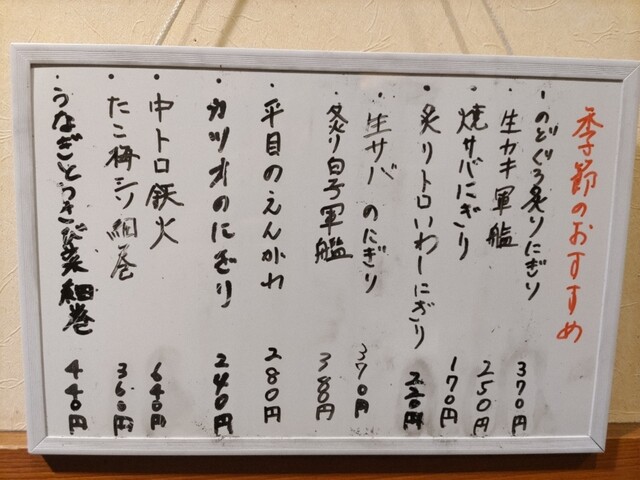 季節のおすすめ
・のどぐろ炙りにぎり 370円
・生カキ軍艦 250円
・焼サバにぎり 170円
・炙りトロいわしにぎり 220円
・生サバのにぎり 370円
・炙り白子軍艦 380円
・平目のえんがわ 280円
・カツオのにぎり 240円
・中トロ鉄火 640円
・たこ梅シソ細巻 360円
・うなぎとうさび菜細巻 440円